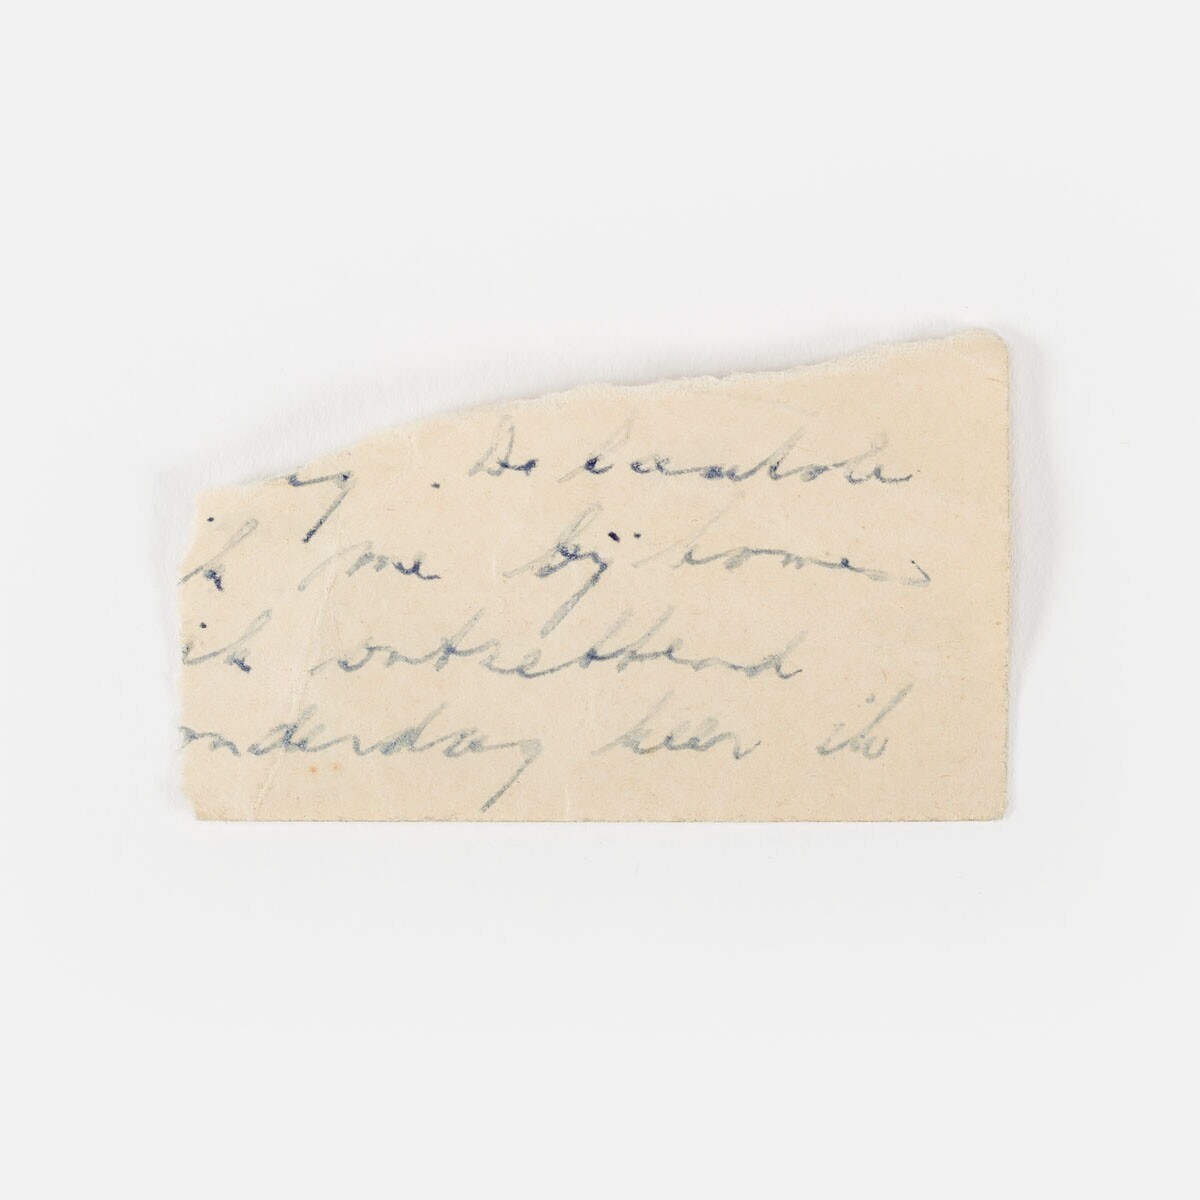 eg. De laatste
ik me bij komen
ik ontzettend
onderdag keer ik